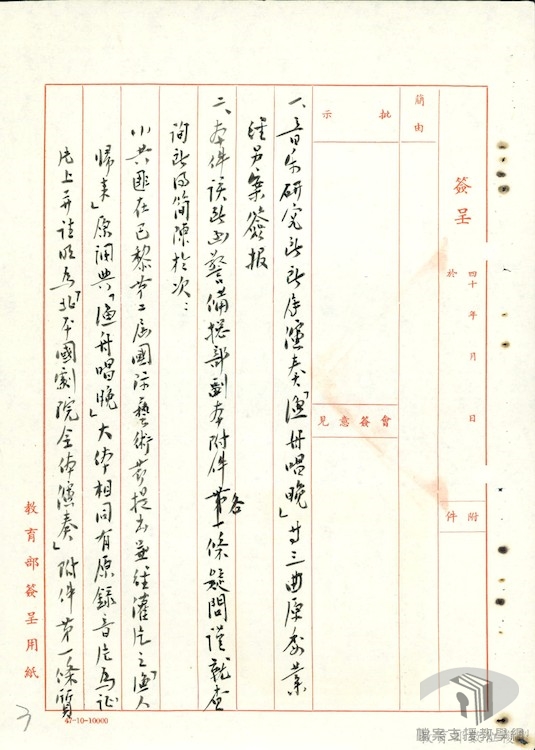 簽呈
四十 年 月 日
於
附件
簡由
批示
會簽意見
一、音樂研究所所屬演奏「漁舟唱晚」等三曲原委業
經另案簽報
二、本件該所函警備總部副本附件第一條各疑問謹就查
詢所得簡陳於次：
(1)共匪在巴黎第二屆國際藝術節提出並經灌片之「漁人
歸來」原詞與「漁舟唱晚」大体相同有原錄音片為証
片上并註明為「北平國劇院全体演奏」附件第一條質
教育部簽呈用紙
47-10-10000
3
檔案支援教學網